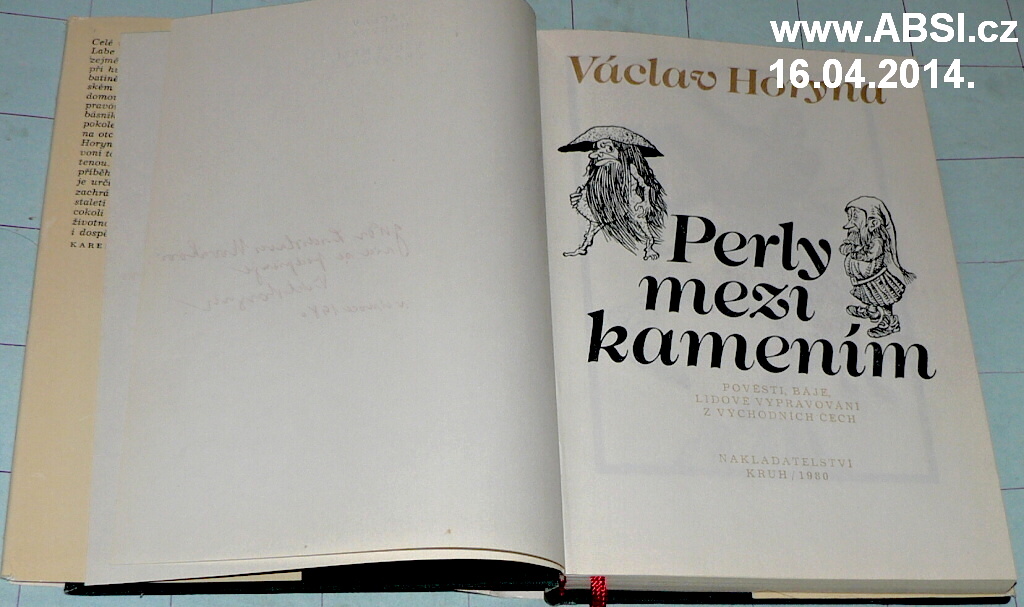 www.ABSI.cz
16.04.2014.
Celé
Labe
zejmé
při hu
batině
ském
domov
pravo
básník
pokole
na otc
Horyn
voní to
tenou.
příběh
je urči
zachrá
staletí
cokoli
životno
i dospě
KARE
Václav Horyna
Perly
mezi
kamením
POVĚSTI, BÁJE,
LIDOVÉ VYPRAVOVÁNÍ
Z VÝCHODNÍCH ČECH
NAKLADATELSTVÍ
KRUH / 1980